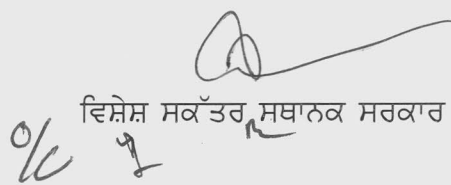 ਵਿਸ਼ੇਸ਼ ਸਕੱਤਰ ਸਥਾਨਕ ਸਰਕਾਰ
O/C